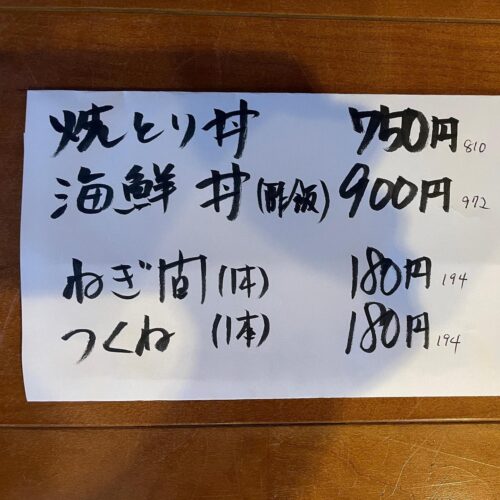 焼とり丼 750円 810
海鮮丼(酢飯) 900円 972
ねぎ間(1本) 180円 194
つくね(1本) 180円 194